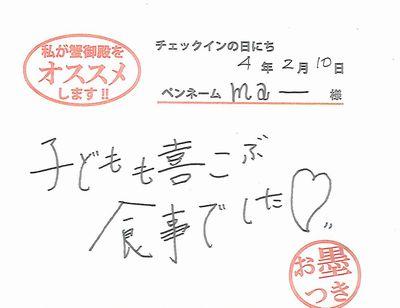 私が蟹御殿を
オススメ
します!!
チェックインの日にち
4年2月10日
ペンネーム ma― 様
子どもも喜こぶ
食事でした♡
お墨
つき